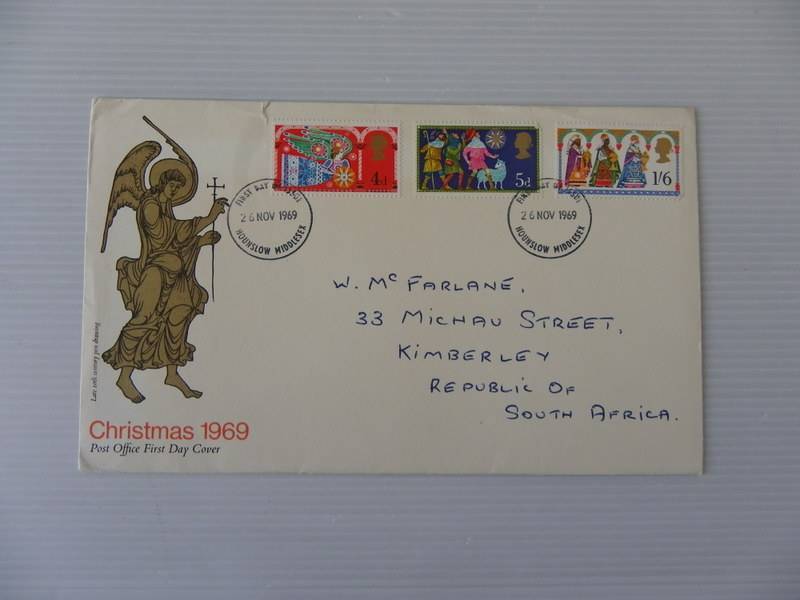 4d
5d
1/6
FIRST DAY OF ISSUE
26 NOV 1969
HOUNSLOW MIDDLESEX
FIRST DAY OF ISSUE
26 NOV 1969
HOUNSLOW MIDDLESEX
W. Mc FARLANE,
33 MICHAU STREET,
KIMBERLEY
REPUBLIC OF
SOUTH AFRICA.
Late 10th century pen drawing
Christmas 1969
Post Office First Day Cover